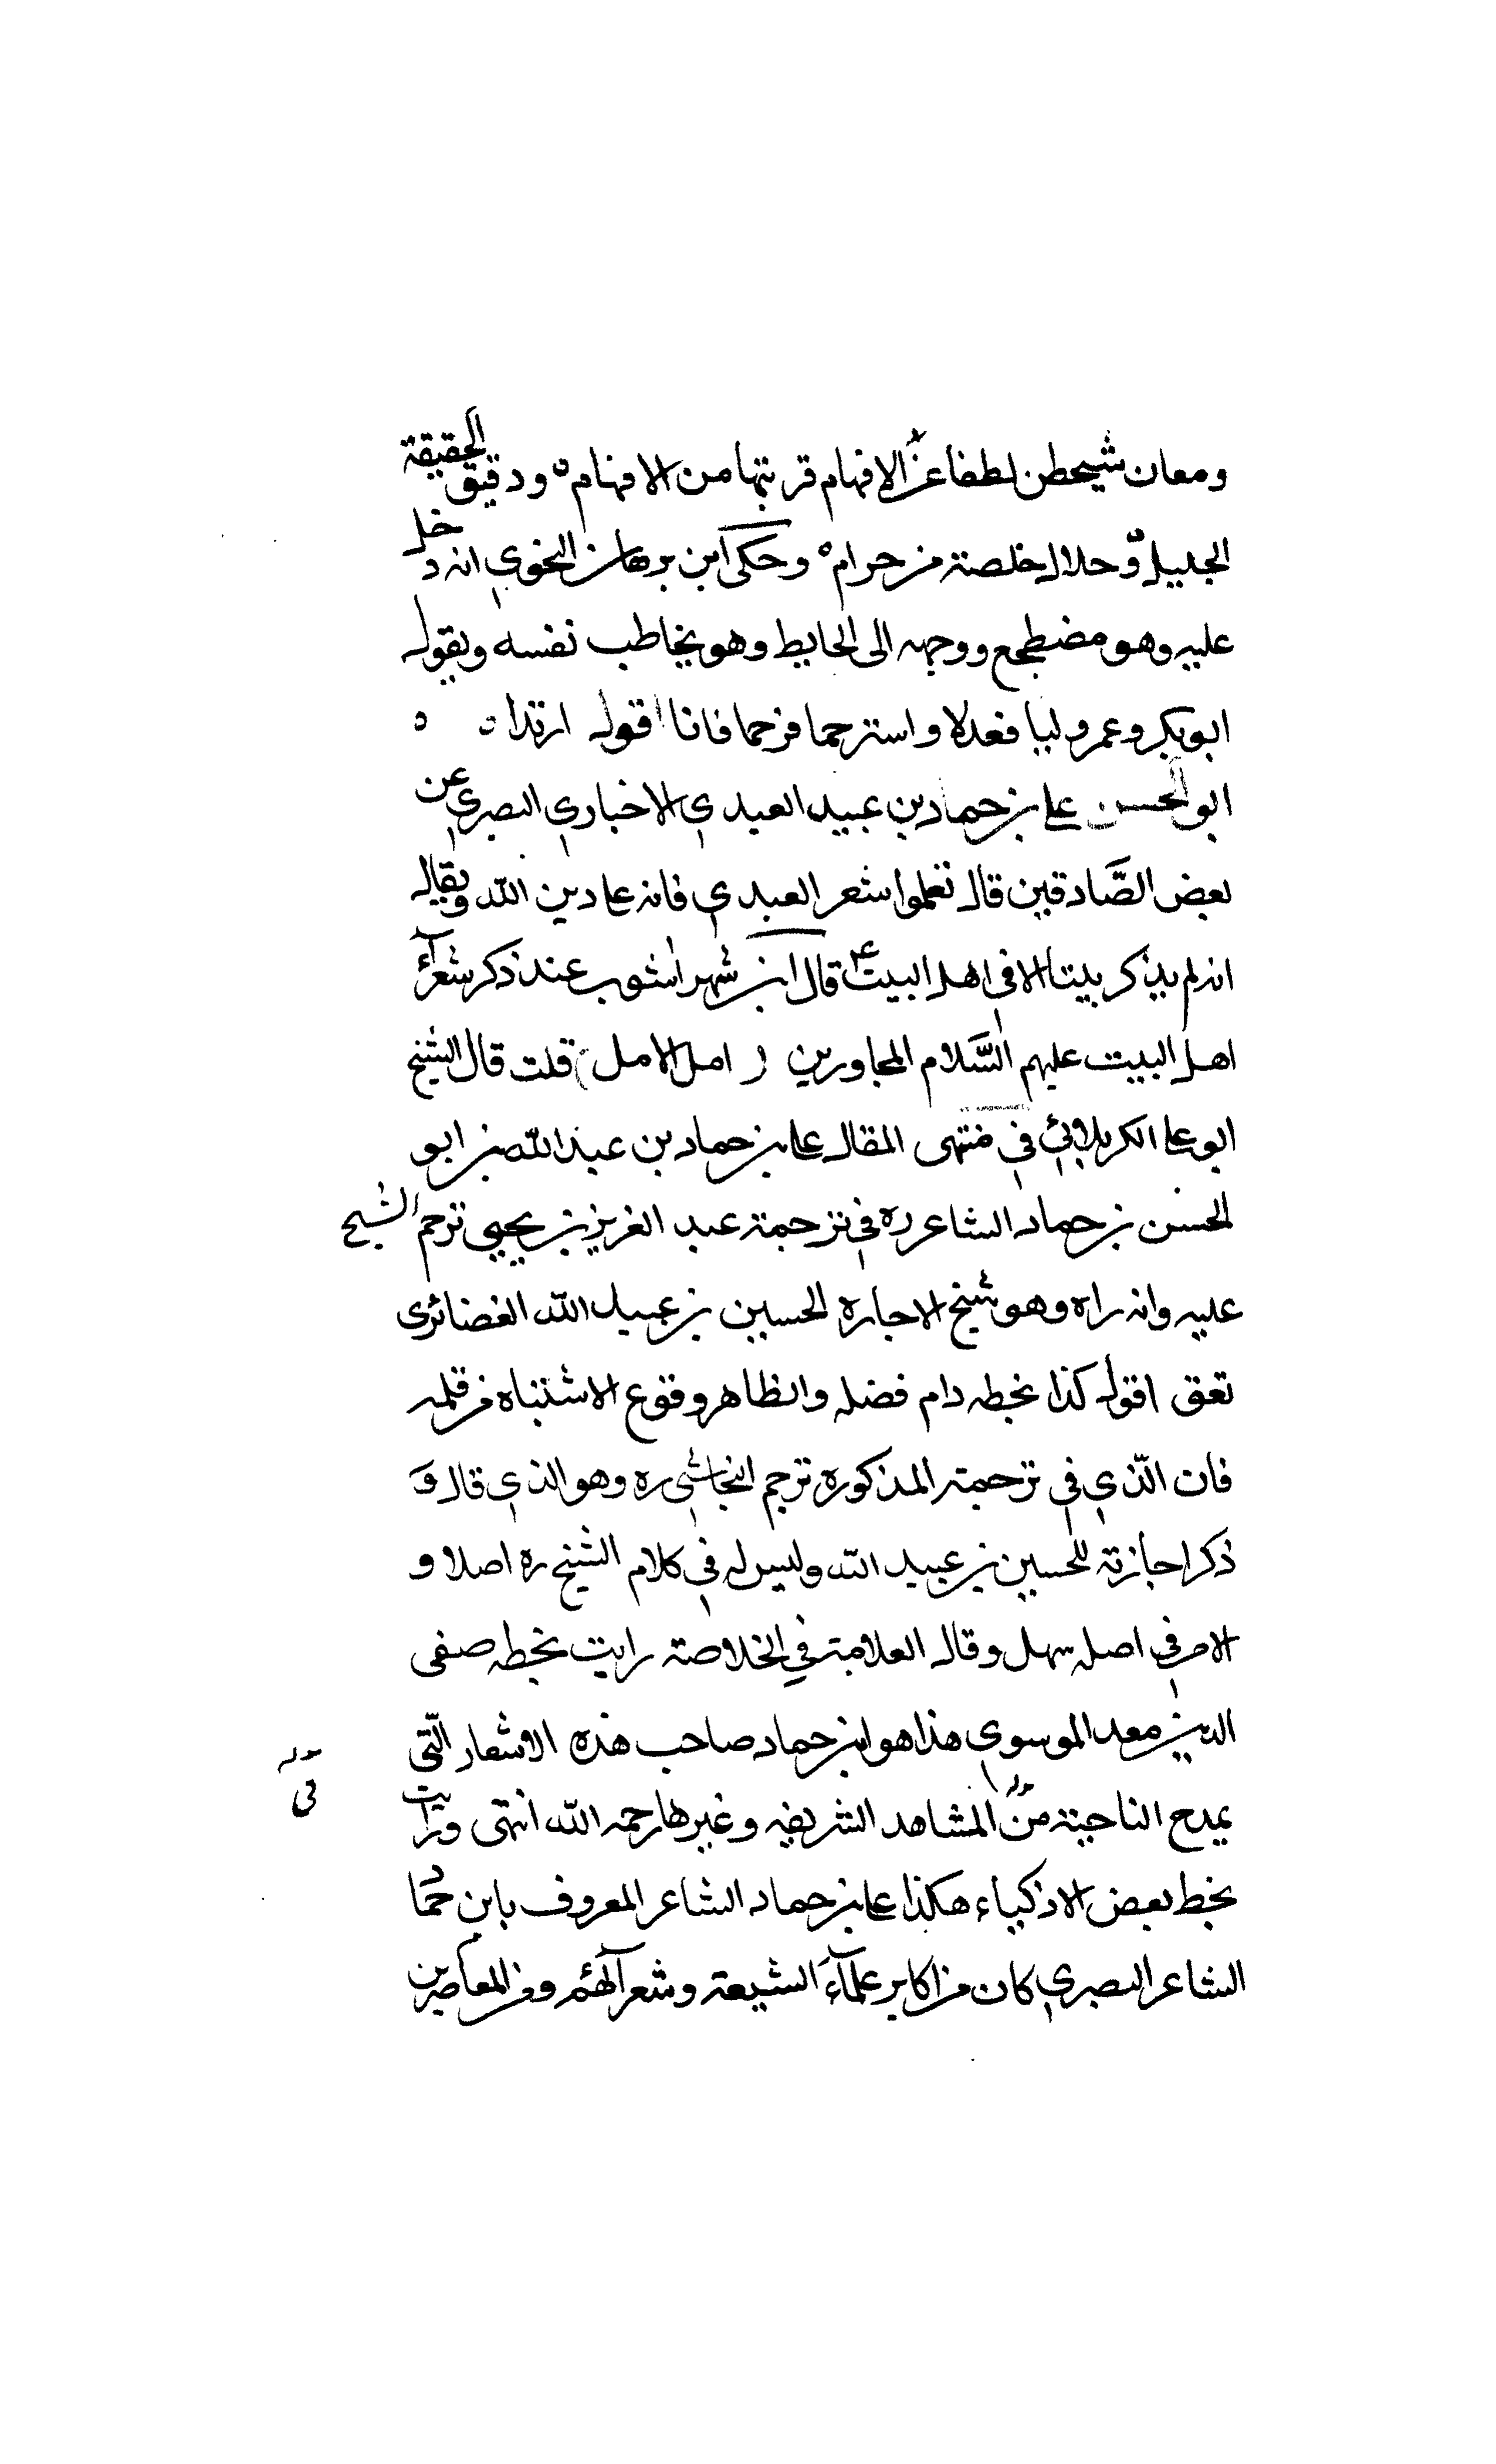 ومعان شيحطن لطفا عن الافهام قربتها من الافهام ه ودقيق الحقيقة
الجليل ه وحلال خلصته من حرام ه وحكى ابن برهان النحوي انه دخل
عليه وهو مضطجع ووجهه الى الحايط وهو يخاطب نفسه ويقول
ابوبكر وعمر وليا فعدلا واسترحما فرحما فانا اقول ارتدا ه ه
ابو الحسن علي بن حماد بن عبيد العبدي الاخباري البصري عن
بعض الصَّادقين قال تعلموا شعر العبدي فانه على دين الله ويقال
انه لم يذكر بيتا الا في اهل البيت ع قال ابن شهراشوب عند ذكر شعرآء
اهل البيت عليهم السَّلام المجاورين ( امل الامل ) قلت قال الشيخ
ابو علي الكربلائي في منتهى المقال علي بن حماد بن عبد الله بن ابو
الحسن بن حماد الشاعر ره في ترجمة عبد العزيز بن يحيى ترحم الشيخ
عليه وانه راه وهو شيخ الاجازه الحسين بن عبيد الله الغضائرى
تعق اقول كذا بخطه دام فضله والظاهر وقوع الاشتباه من قلمه
فان الّذي في ترجمته المذكوره ترحم النجاشي ره وهو الذي قال وَ
ذكر اجازته للحسين بن عبيد الله وليس له في كلام الشيخ ره اصلا و
الامر في اصله سهل وقال العلامة في الخلاصة رايت بخطه صفى
الدين بن معد الموسوي هذا هو ابن حماد صاحب هذه الاشعار الّتي
يمدح الناحية من المشاهد الشريفه وغيرها رحمه الله انتهى ورايت
بخط بعض الاذكياء هكذا علي بن حماد الشاعر المعروف بابن حمّاد
الشاعر البصري كان من اكابر علمآء الشيعة وشعرآئهم ومن المعاصرين